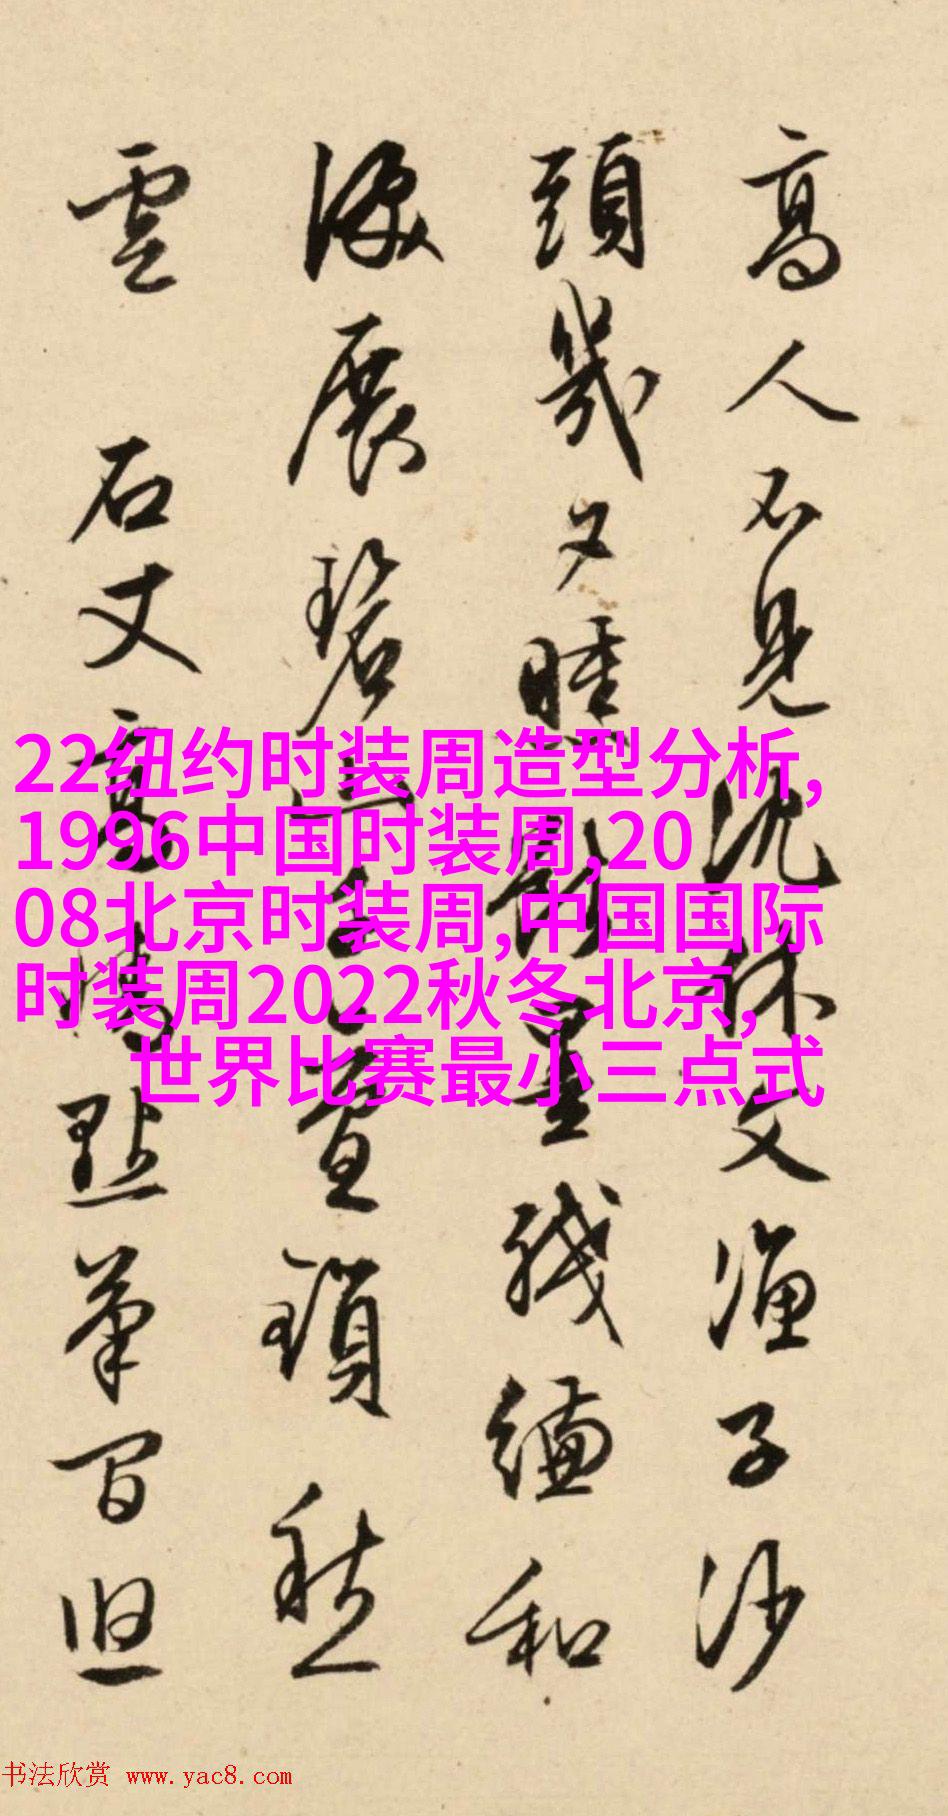 高人不見沈休文漁子沙
頭幾夕曛 影量綫縺和
浪展碧 雲鎖愁
雲 石丈 點筆一百思
22纽约时装周造型分析,
1996中国时装周,20
08北京时装周,中国国际
时装周2022秋冬北京,
世界比赛最小三点式
书法欣赏 www.yac8.com